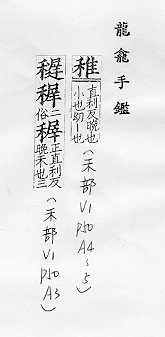 龍龕手鑑
稚 直利反晚也
小也幼一也
(禾部V1
P50
A4~5)
稺 二
俗 稺 正直利反
晚禾也三
(禾部V1
P50
A3)